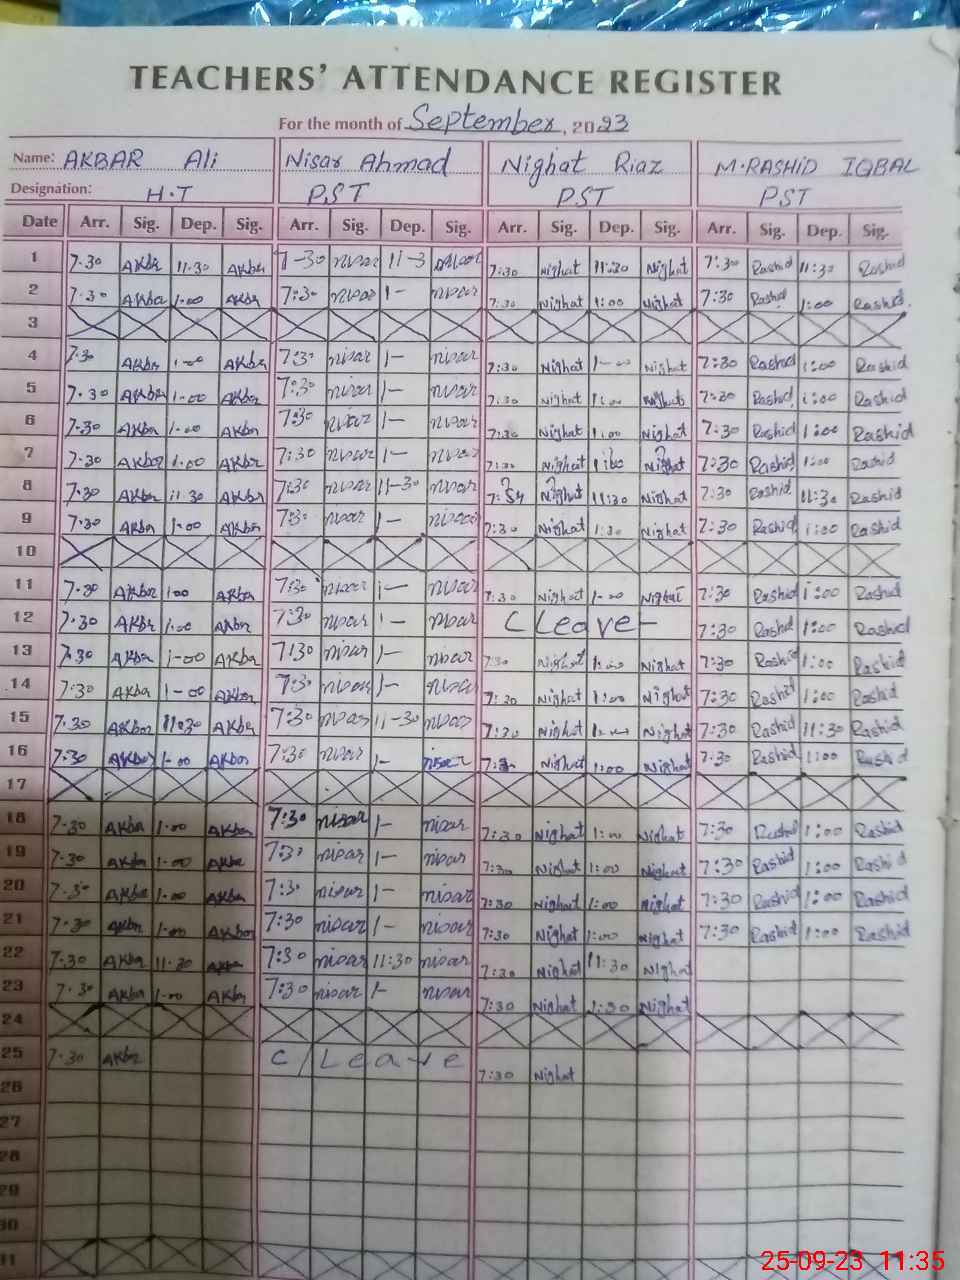 TEACHERS' ATTENDANCE REGISTER
For the month of September, 2023
Name: AKBAR Ali Nisar Ahmad Nighat Riaz M.RASHID IQBAL
Designation: H.T PST PST PST
Date Arr. Sig. Dep. Sig. Arr. Sig. Dep. Sig. Arr. Sig. Dep. Sig. Arr. Sig. Dep. Sig.
1 7.30 AKbr 11.30 AKbr 7-30 nisar 11-3 nisar 7:30 Nighat 11:30 Nighat 7:30 Rashid 11:30 Rashid
2 7.30 AKbr 1-00 AKbr 7:30 nisar 1- nisar 7:30 Nighat 1:00 Nighat 7:30 Rashid 1:00 Rashid
3
4 7.30 AKbr 1-00 AKbr 7:30 nisar 1- nisar 7:30 Nighat 1-00 Nighat 7:30 Rashid 1:00 Rashid
5 7.30 AKbr 1-00 AKbr 7:30 nisar 1- nisar 7:30 Nighat 1:00 Nighat 7:30 Rashid 1:00 Rashid
6 7.30 AKbr 1-00 AKbr 7:30 nisar 1- nisar 7:30 Nighat 1:00 Nighat 7:30 Rashid 1:00 Rashid
7 7.30 AKbr 1.00 AKbr 7:30 nisar 1- nisar 7:30 Nighat 1:00 Nighat 7:30 Rashid 1:00 Rashid
8 7.30 AKbr 11 30 AKbr 7:30 nisar 11-30 nisar Nighat 11:30 Nighat 7:30 Rashid 11:30 Rashid
9 7.30 AKbr 1-00 AKbr 7:30 nisar 1- nisar 7:30 Nighat 1:30 Nighat 7:30 Rashid 1:00 Rashid
10
11 7.30 AKbr 1.00 AKbr 7:30 nisar 1- nisar 7:30 Nighat 1-00 Nighat 7:30 Rashid 1:00 Rashid
12 7.30 AKbr 1.00 AKbr 7:30 nisar 1- nisar C Leave 7:30 Rashid 1:00 Rashid
13 7.30 AKbr 1-00 AKbr 7:30 nisar 1- nisar 7:30 Nighat 1:00 Nighat 7:30 Rashid 1:00 Rashid
14 7:30 AKbr 1-00 AKbr 7:30 nisar 1- nisar 7:30 Nighat 1:00 Nighat 7:30 Rashid 1:00 Rashid
15 7.30 AKbr 11.30 AKbr 7:30 nisar 11-30 nisar 7:30 Nighat Nighat 7:30 Rashid 11:30 Rashid
16 7.30 AKbr 1-00 AKbr 7:30 nisar 1- nisar 7:3 Nighat 1:00 Nighat 7:30 Rashid 1:00 Rashid
17
18 7.30 AKbr 1-00 AKbr 7:30 nisar 1- nisar 7:30 Nighat 1:00 Nighat 7:30 Rashid 1:00 Rashid
19 7.30 AKbr 1-00 AKbr 7:30 nisar 1- nisar 7:30 Nighat 1:00 Nighat 7:30 Rashid 1:00 Rashid
20 7.30 AKbr 1-00 AKbr 7:30 nisar 1- nisar 7:30 Nighat 1:00 Nighat 7:30 Rashid 1:00 Rashid
21 7.30 AKbr 1-00 AKbr 7:30 nisar 1- nisar 7:30 Nighat 1:00 Nighat 7:30 Rashid 1:00 Rashid
22 7.30 AKbr 11.30 AKbr 7:30 nisar 11:30 nisar 7:30 Nighat 11:30 Nighat
23 7.30 AKbr 1-00 AKbr 7:30 nisar 1- nisar 7:30 Nighat 1:30 Nighat
24
25 7.30 AKbr C/Leave 7:30 Nighat
26
27
28
29
30
31
25-09-23 11:35